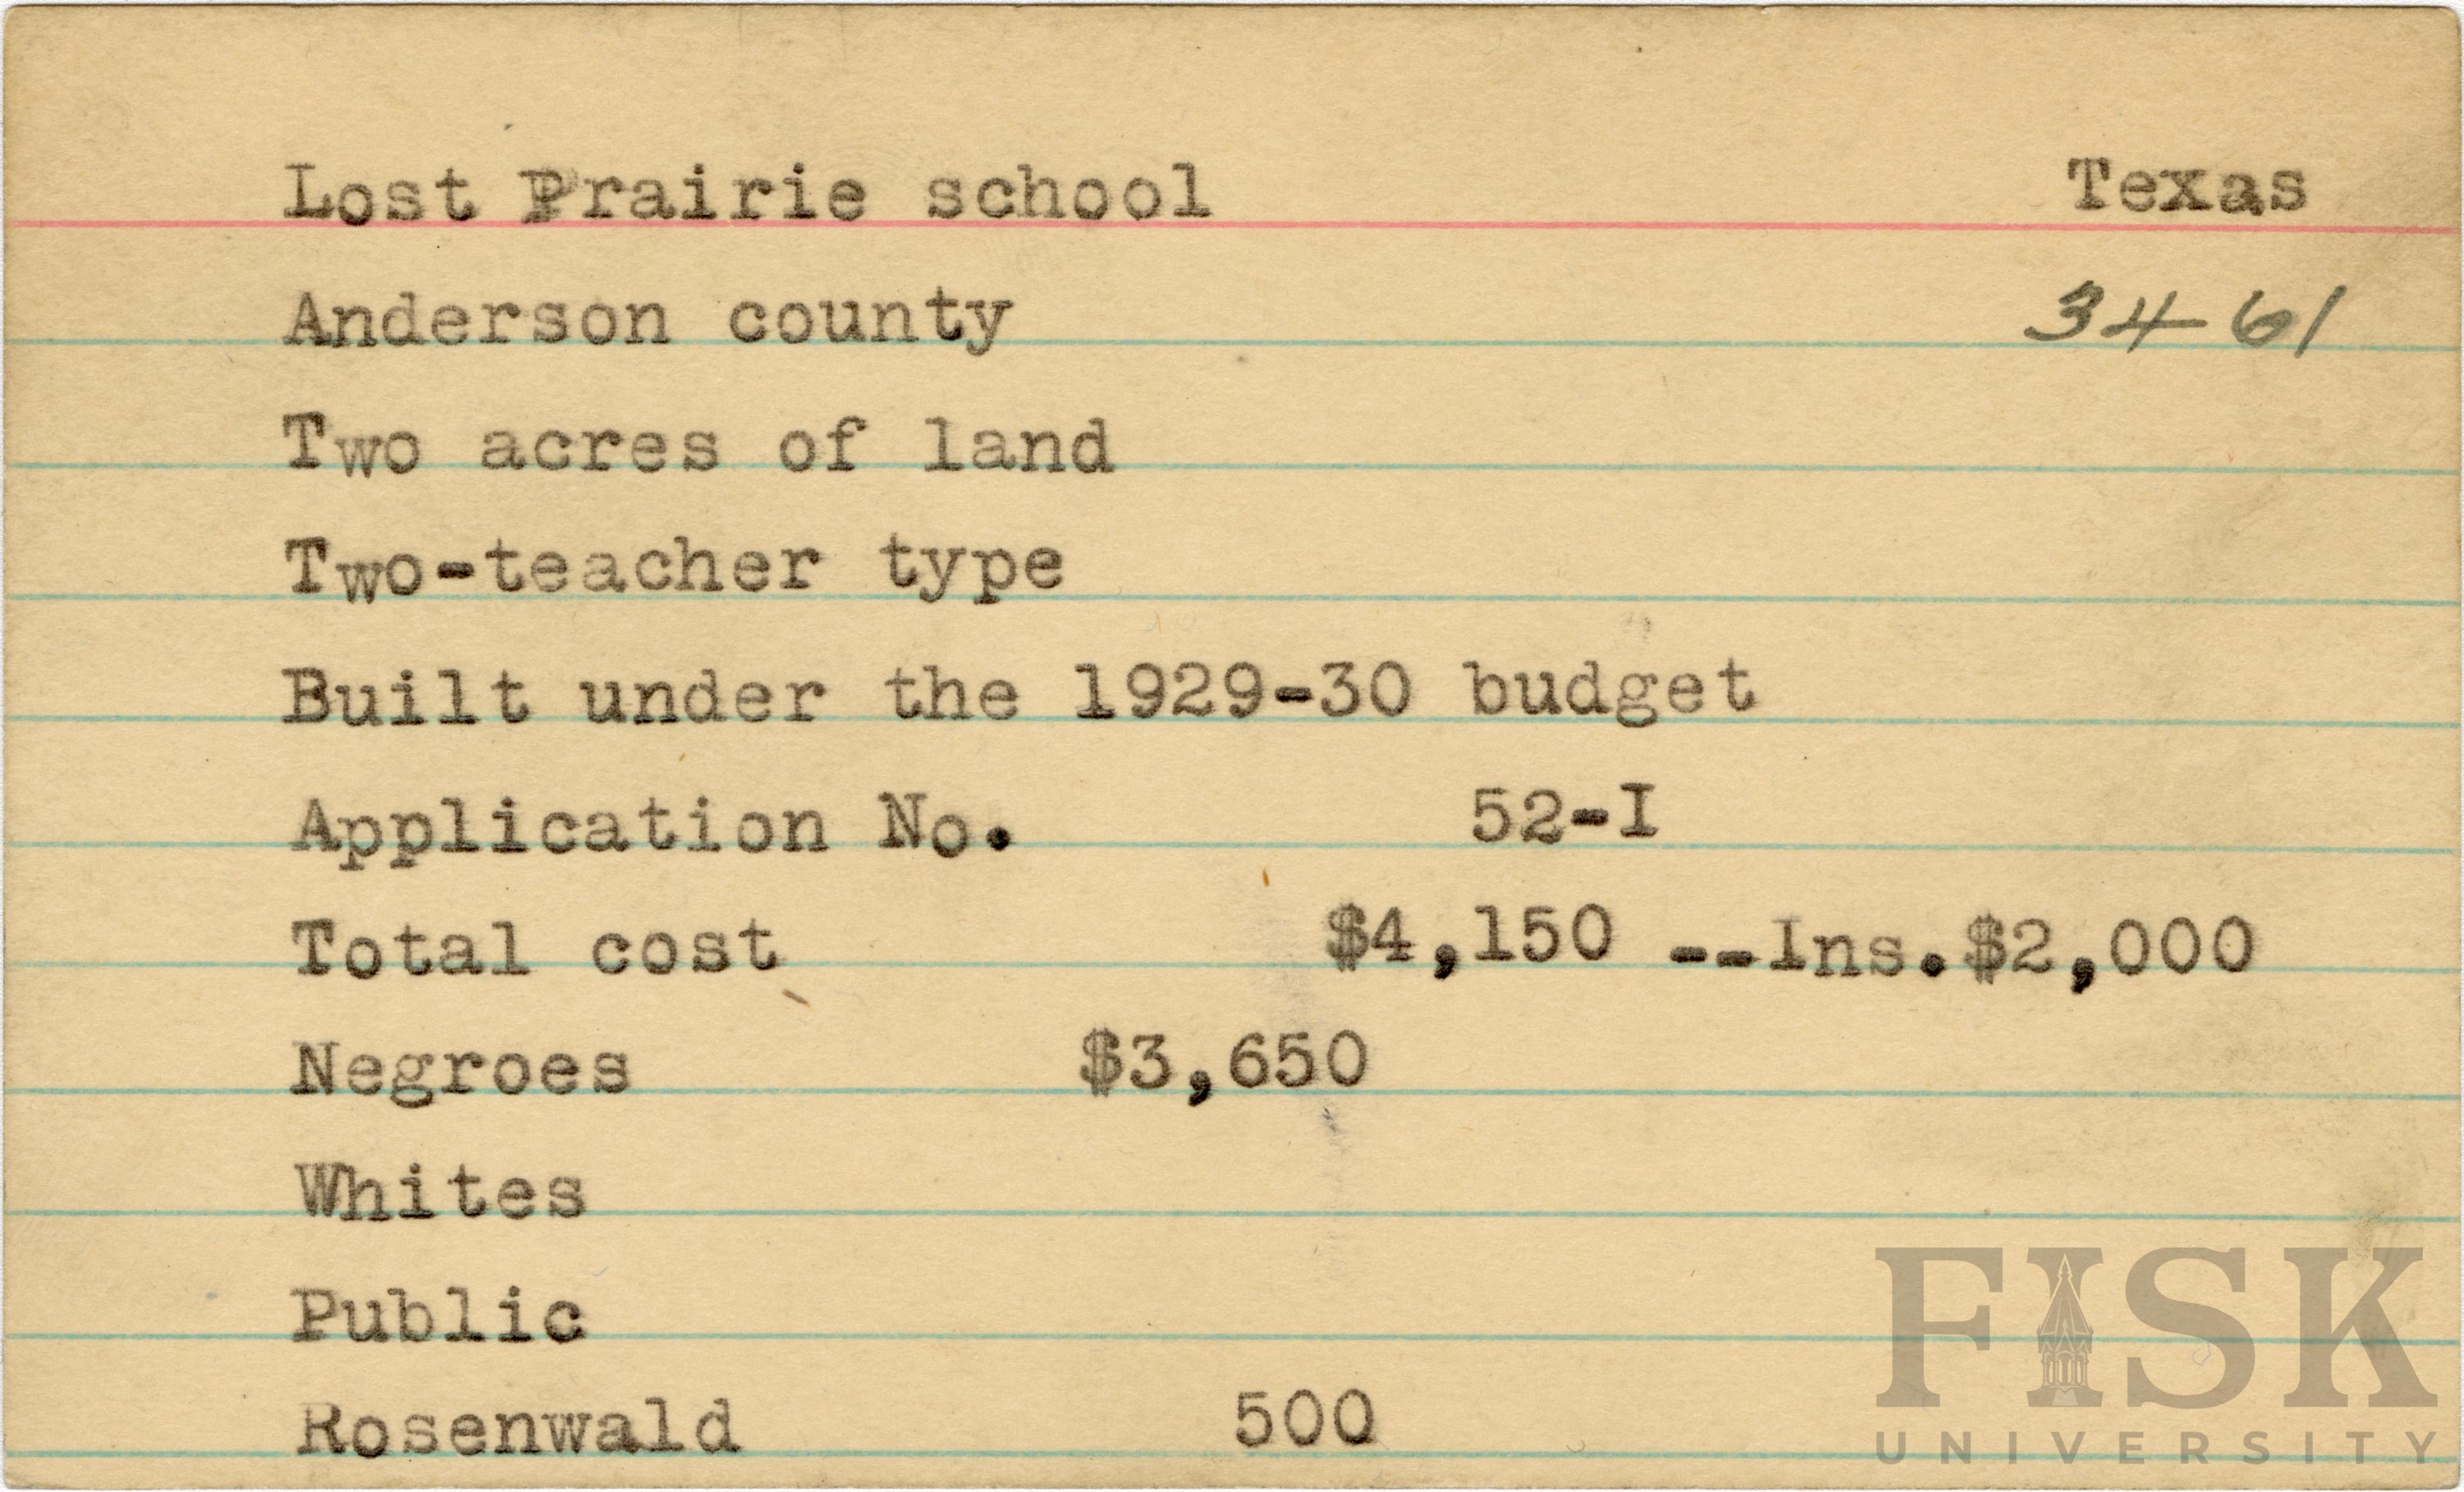 Lost Prairie school Texas
Anderson county 34-61
Two acres of land
Two-teacher type
Built under the 1929-30 budget
Application No. 52-I
Total cost $4,150 --Ins.$2,000
Negroes $3,650
Whites
Public
Rosenwald 500
FISK
UNIVERSITY